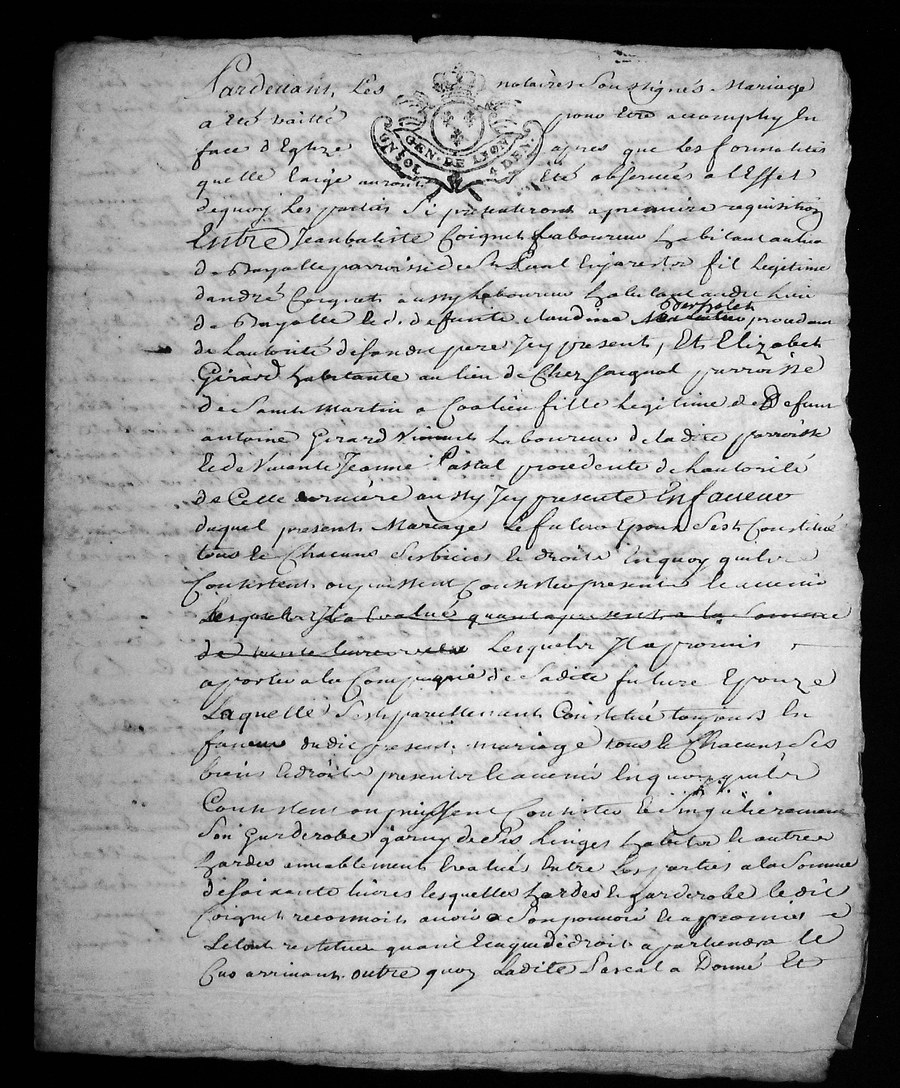 Pardevant Les notaires Soussignés Mariage
GEN. DE LYON
UN SOL 4 DEN.
a Eté traitté pour Etre accomply En
face d'Eglize apres que Les formalités
quelle Exige auront Eté observées a l'Effet
dequoy Les parties Se presenteront a premiere requisition
Entre Jean batiste Coignet Laboureur habitant au lieu
de parroisse de St fil Legitime
d'andré Coignet aussy Laboureur habitant audit Lieu
de Et de defunte claudine procedant
de Lautorité desondit pere Icy present, Et Elizabet
Girard habitante au lieu de Chez parroisse
de Saint Martin a Coalieu fille Legitime de Defunt
antoine Girard vivant Laboureur de ladite parroisse
Et de Vivante Jeanne Pascal procedente de Lautorité
de Cette derniere aussy Icy presente En faveur
duquel present Mariage Le futur Epoux S'est Constitué
tous Et Chacuns Ses biens Et droits En quoy quils
Consistent ou puissent Consister presents Et avenir
Lesquels Il a Evalués quant a present a la Somme
de Lesquels Il a promis
aporter a la Compagnie de Sadite future Epouze
Laquelle S'est pareillement Constituée toujours En
faveur dudit present mariage tous Et Chacuns Ses
biens Et droits presents Et avenir En quoy quils
Consistent ou puissent Consister Et Singulierement
Son Garderobe garny de Ses Linges habits Et autres
hardes amiablement Evalués Entre Les parties a la Somme
de soixante livres lesquelles hardes Et Garderobe Le dit
Coignet reconnoit avoir a Son pouvoir Et a promis
Le tout restituer quant Et a qui de droit apartiendra Le
Cas arrivant outre quoy Ladite Pascal a Donné Et